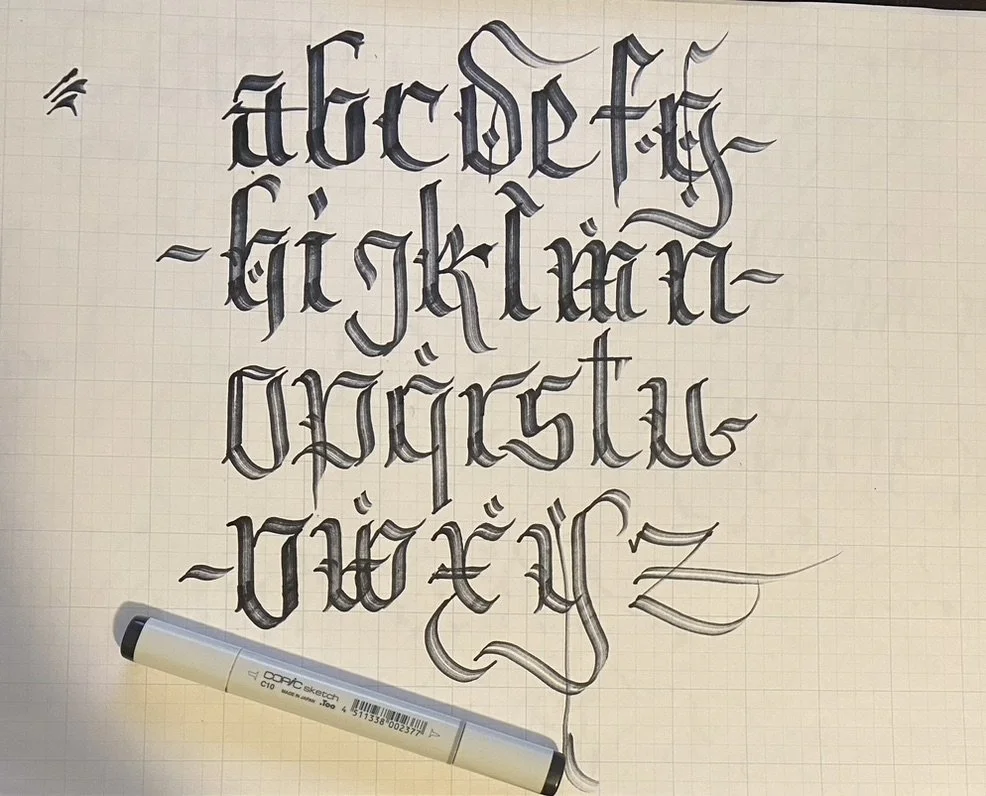 abcdefg
-hijklmn-
opqrstu-
-vwxyz
COPIC sketch
C10 MADE IN JAPAN .Too 4 511338 002377